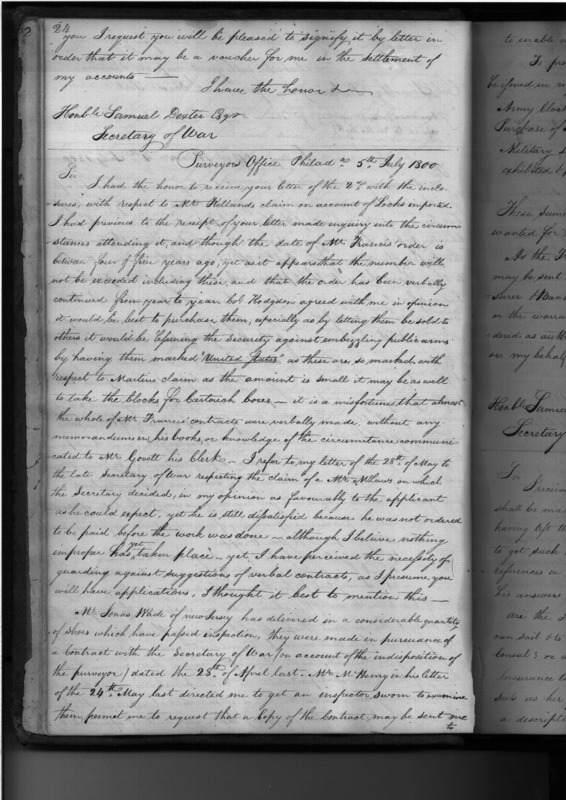 24
you I request you will be pleased to signify it by letter in
order that it may be a voucher for me in the settlement of
my accounts —
I have the honor &
Honble Samuel Dexter Esqr
Secretary of War
Surveyors Office Philada 5th July 1800
Sir
I had the honor to receive your letter of the 2d with the inclo-
sures, with respect to Mr Ketlands claim on account of Locks imported.
I had previous to the receipt of your letter made enquiry into the circum
stances attending it, and though the date of Mr. Francis' order is
between four & five years ago, yet as it appears that the number will
not be exceeded including these, and that the order has been verbally
continued from year to year. Col Hodgdon agreed with me in opinion
it would be best to purchase them, especially as by letting them be sold to
others it would be lessening the security against embezzling public arms
by having them marked "United States" as these are so marked, with
respect to Martins claim as the amount is small it may be as well
to take the blocks for Cartouch boxes — it is a misfortune that almost
the whole of Mr. Francis' contracts were verbally made without any
memorandums in his books, or knowledge of the circumstance communi
cated to Mr. Govett his Clerk — I refer to my letter of the 28th of May to
the late Secretary of War respecting the claim of a Mr. on which
the Secretary decided, in my opinion as favourably to the applicant
as he could expect, yet he is still dissatisfied because he was not ordered
to be paid before the work was done — although I believe nothing
improper has yet taken place — yet I have perceived the necessity of
guarding against suggestions of verbal contracts, as I presume you
will have applications, I thought it best to mention this —
Mr. Jonas Wade of new Jersey has delivered in a considerable quantity
of Shoes which have passed inspection, they were made in pursuance of
a Contract with the Secretary of War (on account of the indisposition of
the purveyor) dated the 25th of April last. Mr. McHenry in his letter
of the 24th May last directed me to get an inspector sworn to examine
them, permit me to request that a Copy of the Contract, may be sent me
to
to enable
To pro
Army
Purchase of
Military
exhibited
These sums
wanted for
As the
may be sent
surer
or the warra
dered as
on my behalf
Honble Samuel
Secretary
Sir
I receive
shall be ma
having left th
to get such
references in
his answers
are the
can sail
Consul
Insurance
as her
a descript